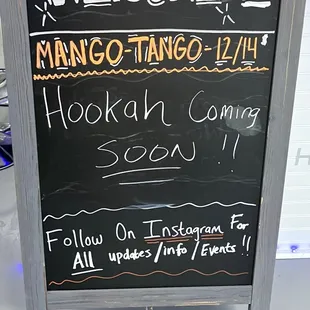 MANGO-TANGO-12/14$
Hookah Coming
SOON !!
Follow On Instagram For
All updates/info/Events !!